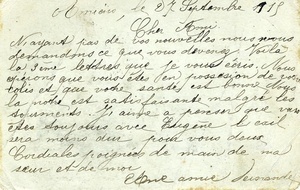 Amiens, le 27 Septembre 1915
Cher Ami
N'ayant pas de vos nouvelles nous nous
demandons ce que vous devenez. Voila
la 3ème lettres que je vous écris. Nous
espérons que vous êtes en possesion de vos
colis et que votre santé est bonne. Nous
la notre est satisfaisante malgré les
tourments. J'aime a penser que vous
êtes toujours avec Eugène l'exil
sera moins dur pour vous deux
Cordiales poignées de main de ma
sœur et de moi
Une amie Fernande